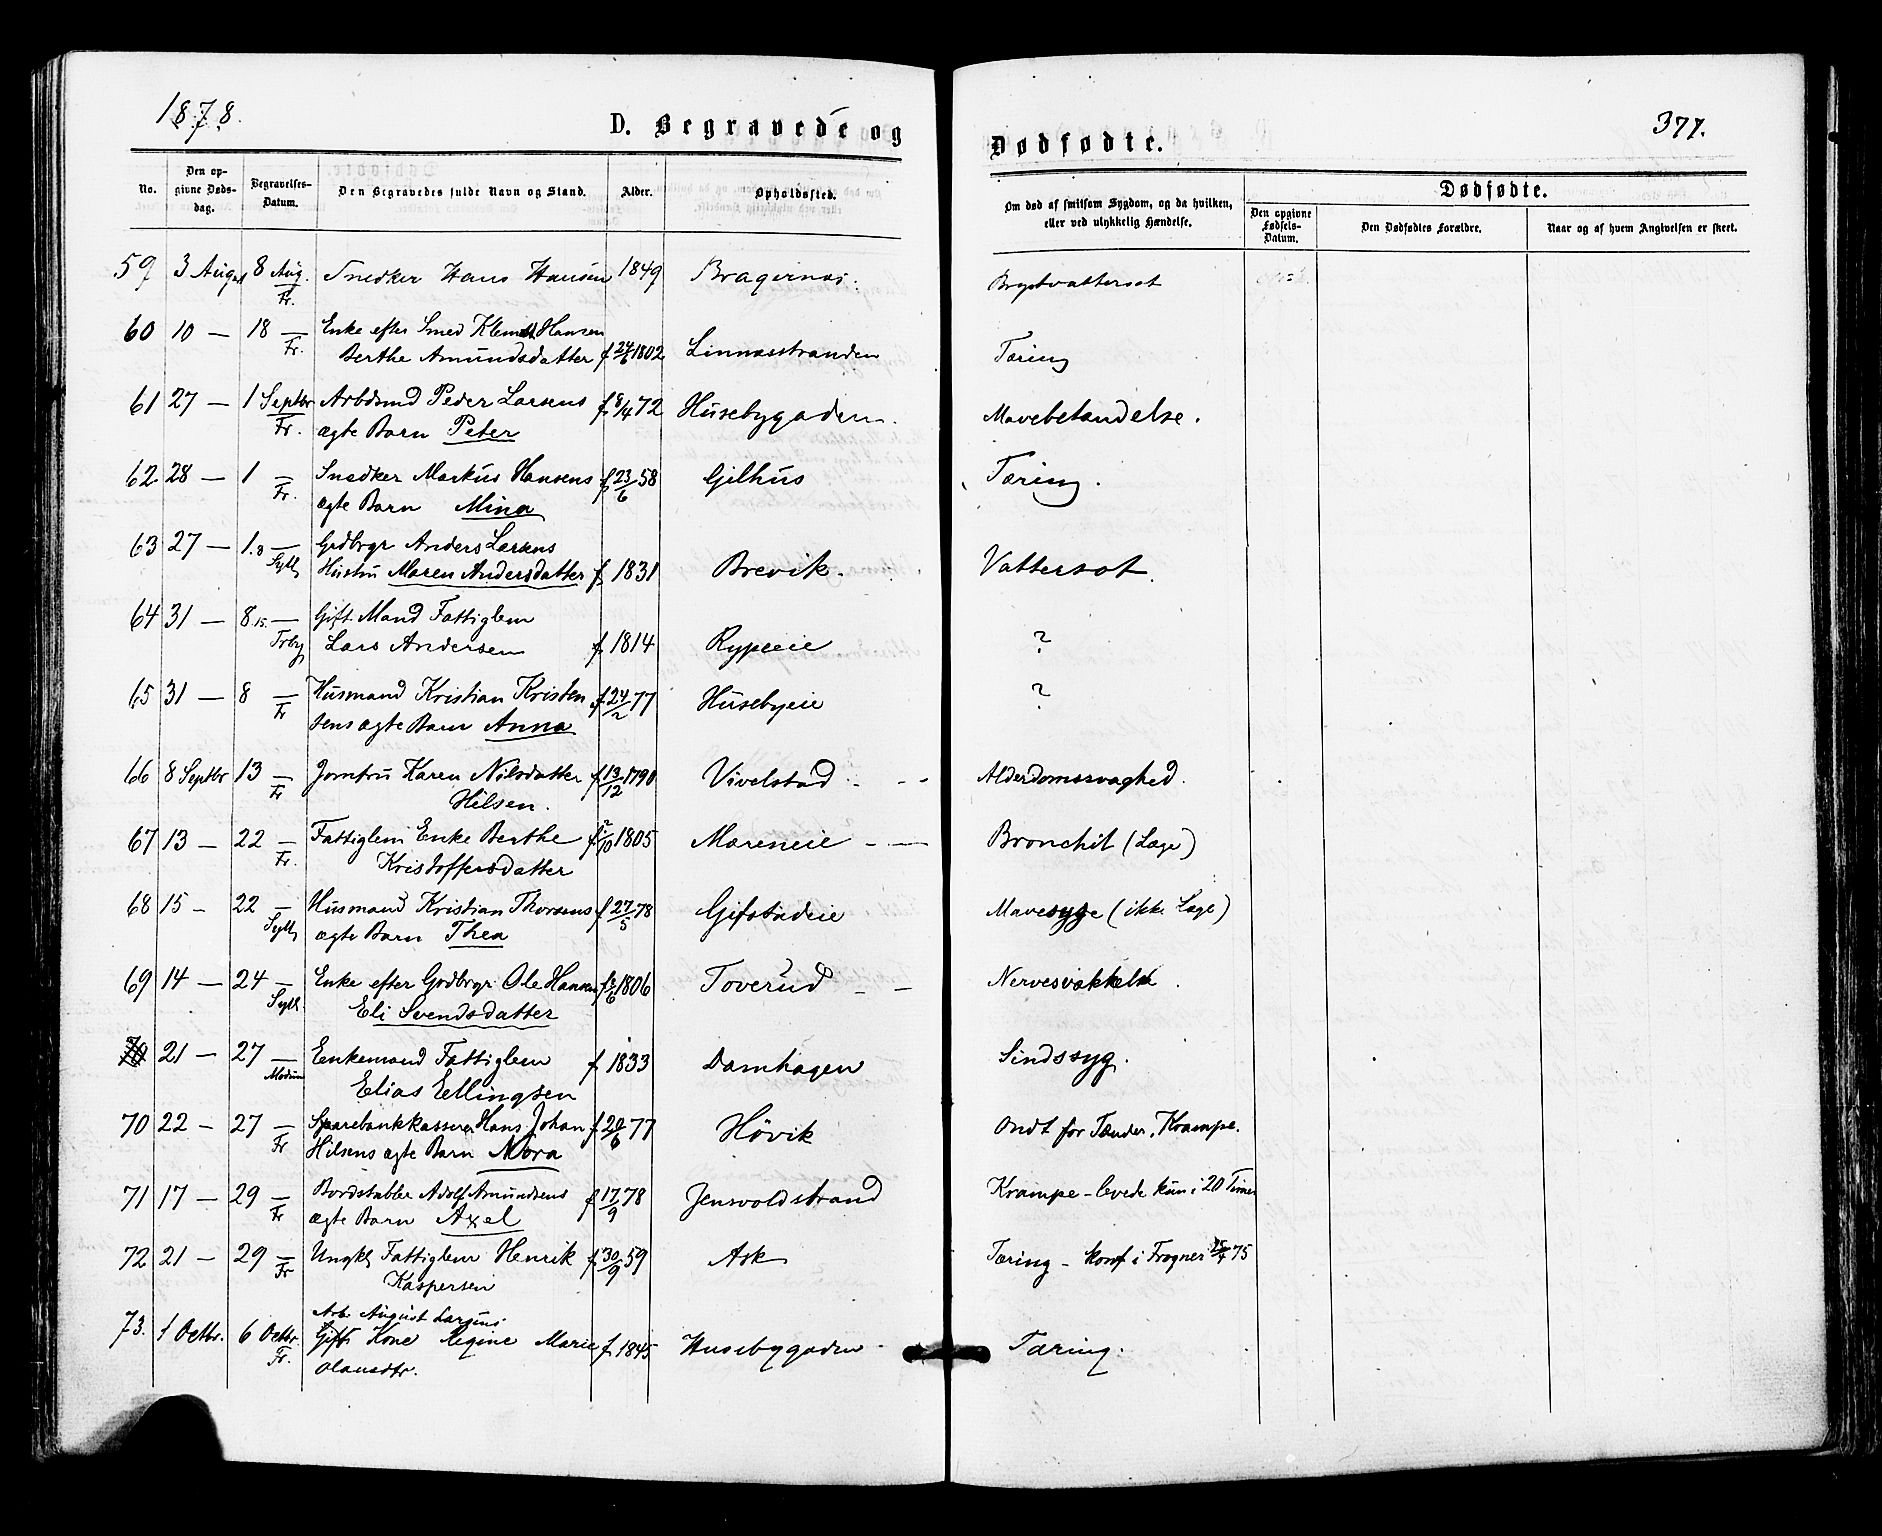 1878.
D. Begravede og
Dødfødte.
377.
No.
Den op-
givne Døds-
dag.
Begravelses-
Datum.
Den Begravedes fulde Navn og Stand.
Alder.
Opholdssted.
Om død af smitsom Sygdom, og da hvilken,
eller ved ulykkelig Hændelse.
Dødfødte.
Den opgivne
Fødsels-
Datum.
Den Dødfødtes Forældre.
Naar og af hvem Angivelsen er skeet.
59 3 August 8 Aug. Snedker Hans Hansen 1849 Bragernæs. Brystvattersot
Fr.
60 10 — 18 — Enke efter Smed Klemet Hansen
Fr. Berthe Amundsdatter f 24/6 1802 Linnæsstranden Tæring
61 27 — 1 Septbr Arbdsmd Peder Larsens f 8/4 72 Husebygaden. Mavebetændelse.
Fr. ægte Barn Peter
62 28 — 1 — Snedker Markus Hansens f 23/6 58 Gilhus Tæring.
Fr. ægte Barn Mina
63 27 — 1.8 — Grdbrgr Anders Larsens
Syll Hustru Maren Andersdatter f 1831 Brevik. Vattersot.
64 31 — 8.15. — Gift Mand Fattiglem
Trby Lars Andersen f 1814 Rypeeie ?
65 31 — 8 — Husmand Kristian Kristen f 24/2 77 Husebyeie ?
Fr sens ægte Barn Anna
66 8 Septbr 13 — Jomfru Karen Nilsdatter f 13/12 1790 Vivelstad - - - Alderdomssvaghed.
Fr Hilsen.
67 13 — 22 — Fattiglem Enke Berthe f 2/10 1805 Mæreneie - — Bronchit (Læge)
Fr. Kristoffersdatter
68 15 - 22 — Husmand Kristian Thorsens f 27/5 78 Gifstadeie Mavesyge (ikke Læge)
Syll ægte Barn Thea
69 14 — 24 — Enke efter Grdbrgr Ole Hansen f 1806 Toverud - - Nervesvækkelse.
Syll Eli Svendsdatter
70 21 — 27 — Eenkemand Fattiglem f 1833 Damhagen Sindssyg.
Modum Elias Ellingsen
70 22 - 27 — Sparebankkasserer Hans Johan f 20/6 77 Hövik Ondt for Tænder, Krampe.
Fr Hilsens ægte Barn Nora
71 17 — 29 — Bordstabler Adolf Amundsens f 17/9 78 Jensvoldstrand Krampe - levede kun i 20 Timer
Fr ægte Barn Axel
72 21 — 29 — Ungkl Fattiglem Henrik f 30/9 59 Ask Tæring - konf i Frogner 75
Fr Kaspersen
Arb. August Larsens
73. 1 Octbr. 6 Octbr. Gift Kone Regine Marie f 1845 Husebygaden - Tæring.
Fr. Olausdtr.